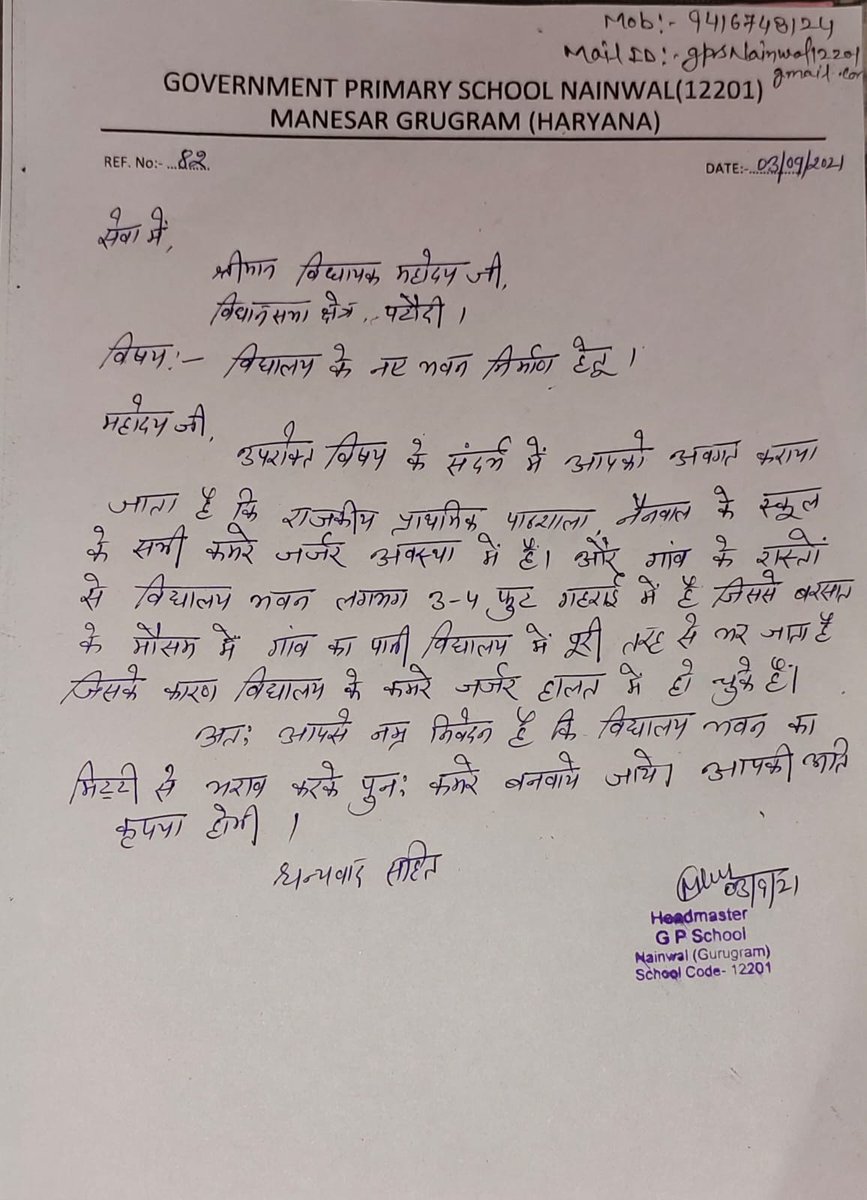 Mob:- 9416748124
Mail ID:- gpsNainwal12201
gmail.com
GOVERNMENT PRIMARY SCHOOL NAINWAL(12201)
MANESAR GRUGRAM (HARYANA)
REF. No:- ...82..
DATE:-...03/09/2021
सेवा में,
श्रीमान विधायक महोदय जी,
विधानसभा क्षेत्र, पटौदी ।
विषय:- विद्यालय के नए भवन निर्माण हेतू ।
महोदय जी,
उपरोक्त विषय के संदर्भ में आपको अवगत कराया
जाता है कि राजकीय प्राथमिक पाठशाला, नैनवाल के स्कूल
के सभी कमरे जर्जर अवस्था में है। और गांव के रास्तों
से विद्यालय भवन लगभग 3-4 फुट गहराई में है जिससे बरसात
के मौसम में गांव का पानी विद्यालय में पूरी तरह से भर जाता है
जिसके कारण विद्यालय के कमरे जर्जर हालत में हो चुके हैं।
अत: आपसे नम्र निवेदन है कि विद्यालय भवन का
मिट्टी से भराव करके पुन: कमरे बनवाये जाये। आपकी अति
कृपया होगी ।
धन्यवाद सहित
03/9/21
Headmaster
G P School
Nainwal (Gurugram)
School Code- 12201